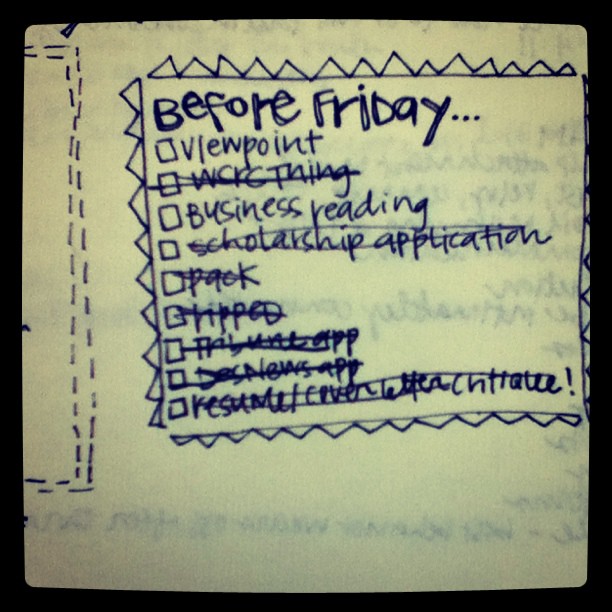 Before Friday...
Viewpoint
WCRC Thing
Business reading
scholarship application
pack
Tribune app
DesNews app
resume/cover letter critique!